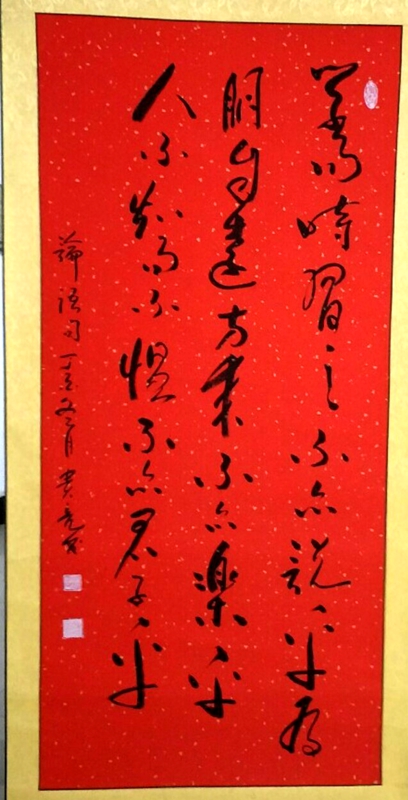 學而時習之不亦說乎有
朋自遠方來不亦樂乎
人不知而不慍不亦君子乎
論語句丁亥